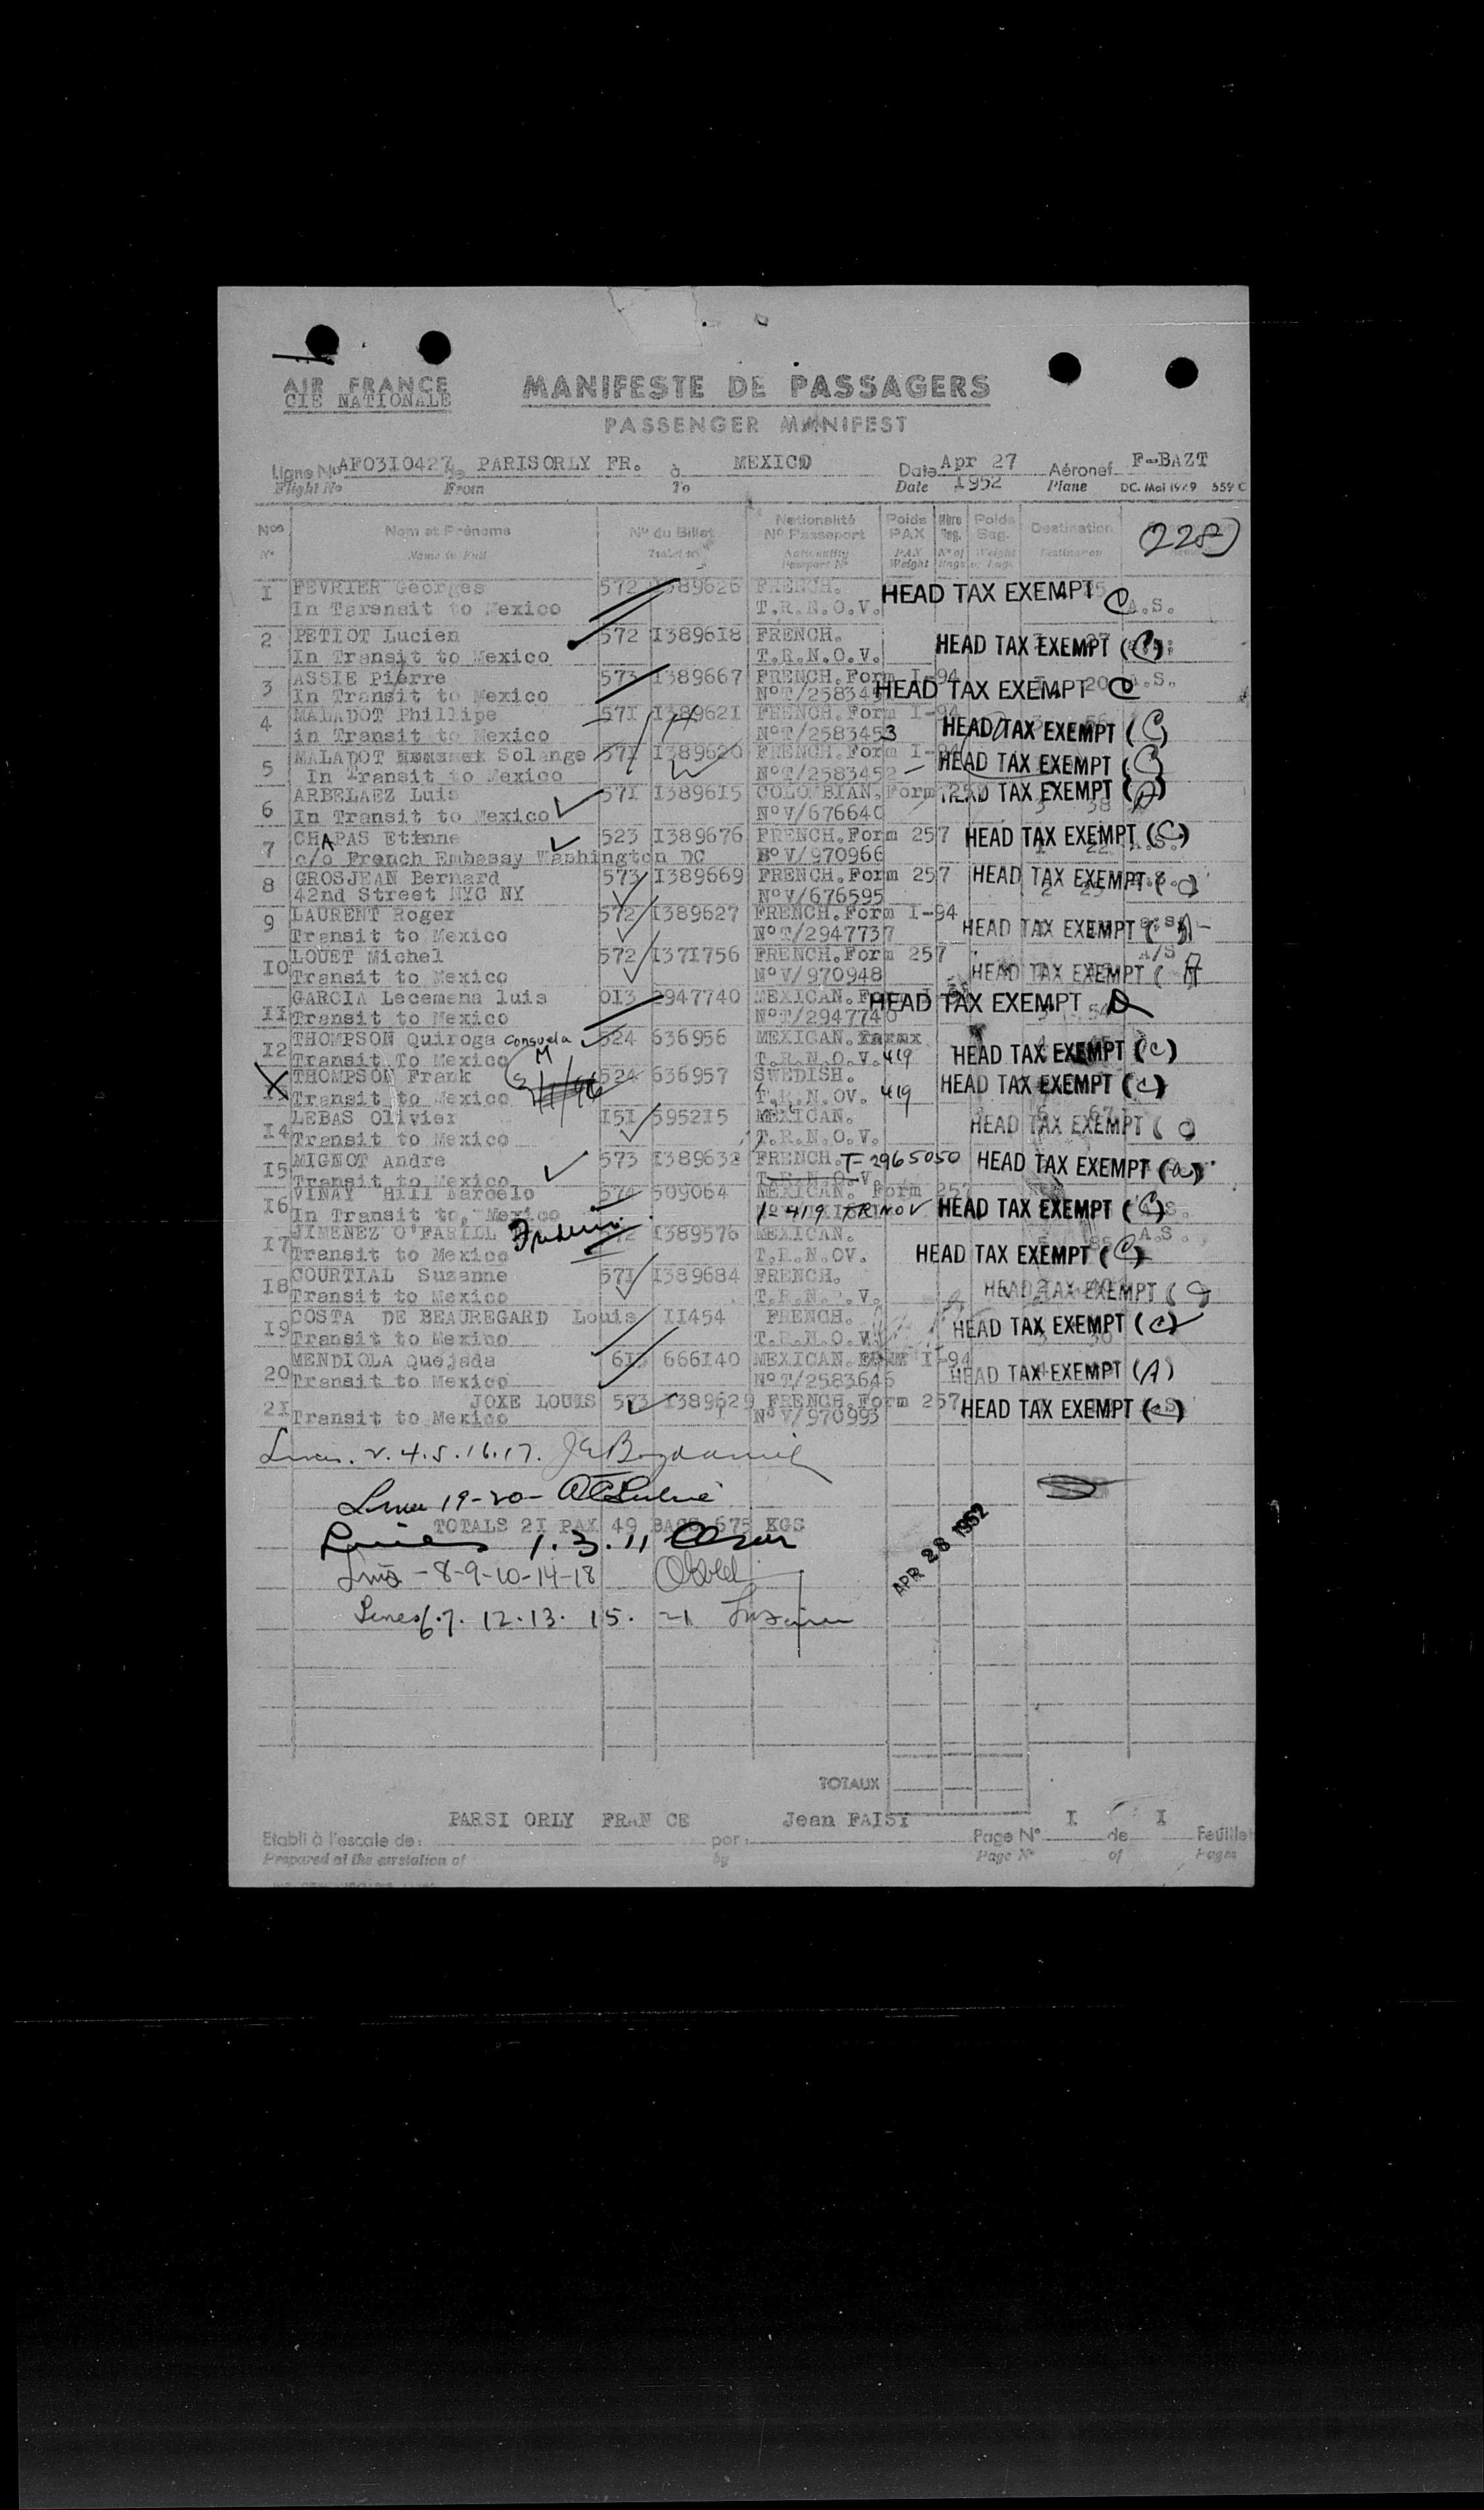 AIR FRANCE
CIE NATIONALE
MANIFESTE DE PASSAGERS
PASSENGER MANIFEST
Ligne No AF0310427 de PARISORLY FR. à MEXICO Date Apr 27 Aéronef F-BAZT
Flight No From To Date 1952 Plane DC. Mai 1949 559 C
Nos Nom et Prénoms No du Billet Nationalité Poids Poids Destination (228)
No Passeport PAX Bag.
No Name in Full Ticket No Nationality PAX No of Weight Destination
Passport No Weight Bags
I FEVRIER Georges 572 I389626 FRENCH. HEAD TAX EXEMPT C
In Taransit to Mexico T.R.N.O.V. A.S.
2 PETIOT Lucien 572 I389618 FRENCH. HEAD TAX EXEMPT (C)
In Transit to Mexico T.R.N.O.V.
3 ASSIE Piérre 573 I389667 FRENCH.Form I-94 20 A.S.
In Transit to Mexico NoT/258345 HEAD TAX EXEMPT C
4 MALADOT Phillipe 57I I38962I FRENCH.Form I-94
in Transit to Mexico NoT/2583453 HEAD TAX EXEMPT (C)
5 MALADOT Solange 57I I389620 FRENCH.Form I-94
In Transit to Mexico NoT/2583452 HEAD TAX EXEMPT (C)
6 ARBELAEZ Luis 57I I3896I5 COLOMBIAN.Form HEAD TAX EXEMPT (A)
In Transit to Mexico NoV/676640 38
7 CHAPAS Etienne 523 I389676 FRENCH.Form 257 HEAD TAX EXEMPT (C)
c/o French Embassy Washington DC NoV/970966 22
8 GROSJEAN Bernard 573 I389669 FRENCH.Form 257 HEAD TAX EXEMPT (C)
42nd Street NYC NY NoV/676595
9 LAURENT Roger 572 I389627 FRENCH.Form I-94
Transit to Mexico NoT/2947737 HEAD TAX EXEMPT (A)
IO LOUET Michel 572 I37I756 FRENCH.Form 257 A/S
Transit to Mexico NoV/970948 HEAD TAX EXEMPT (A
II GARCIA Lecemena luis 0I3 2947740 MEXICAN. HEAD TAX EXEMPT A
Transit to Mexico NoT/2947740 54
I2 THOMPSON Quiroga Consuela 524 636956 MEXICAN.
Transit To Mexico M T.R.N.O.V. 419 HEAD TAX EXEMPT (C)
X THOMPSON Frank 524 636957 SWEDISH.
Transit to Mexico T.R.N.OV. 419 HEAD TAX EXEMPT (C)
I4 LEBAS Olivier I5I 5952I5 MEXICAN. 67
Transit to Mexico T.R.N.O.V. HEAD TAX EXEMPT (C)
I5 MIGNOT Andre 573 I389632 FRENCH. T-2965050 HEAD TAX EXEMPT (a)
Transit to Mexico T.R.N.O.V.
I6 VINAY Hill Marcelo 574 509064 MEXICAN. Form 257
In Transit to, Mexico 419 TRINOV HEAD TAX EXEMPT (C)
I7 JIMENEZ O'FARILL 572 I389576 MEXICAN. A.S.
Transit to Mexico T.R.N.OV. HEAD TAX EXEMPT (C)
I8 COURTIAL Suzanne 57I I389684 FRENCH.
Transit to Mexico HEAD TAX EXEMPT (C)
I9 COSTA DE BEAUREGARD Louis II454 FRENCH.
Transit to Mexino T.R.N.O.V. HEAD TAX EXEMPT (C)
20 MENDIOLA Quejada 6I3 666I40 MEXICAN. I-94
Transit to Mexico NoT/2583646 HEAD TAX EXEMPT (A)
2I JOXE LOUIS 573 I389629 FRENCH.Form 257
Transit to Mexico NoV/970993 HEAD TAX EXEMPT (C)
2. 4. 5. 16. 17.
19-20-
TOTALS 2I PAX 49 BAGS 675 KGS
1. 3. 11
APR 28 1952
-8-9-10-14-18
6.7. 12.13. 15. 21
TOTAUX
PARSI ORLY FRAN CE Jean FAISI I I
Etabli à l'escale de: par: Page No de Feuillet
Prepared at the airstation of by Page No of Pages